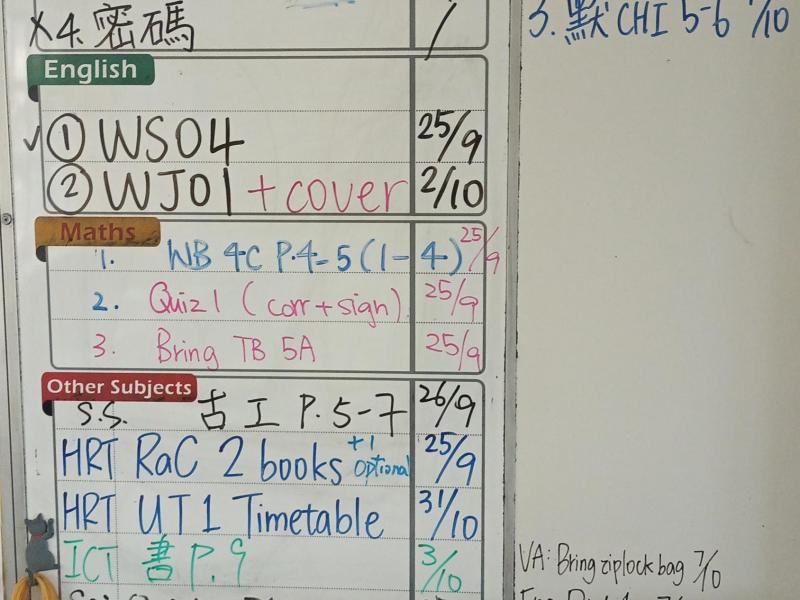 X 4. 密碼 /
English
✓ ① WS04 25/9
② WJ01 + cover 2/10
Maths
1. WB 4C P.4-5 (1-4) 25/9
2. Quiz 1 (corr + sign) 25/9
3. Bring TB 5A 25/9
Other Subjects
S.S. 古工 P. 5-7 26/9
HRT RaC 2 books +1 optional 25/9
HRT UT 1 Timetable 31/10
ICT 書 P. 9 3/10
3. 默 CHI 5-6 7/10
VA: Bring ziplock bag 7/10